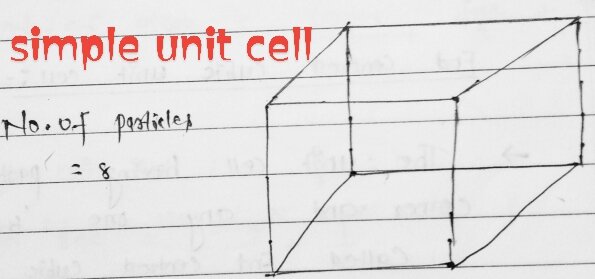 simple unit cell
No. of particles
= 8